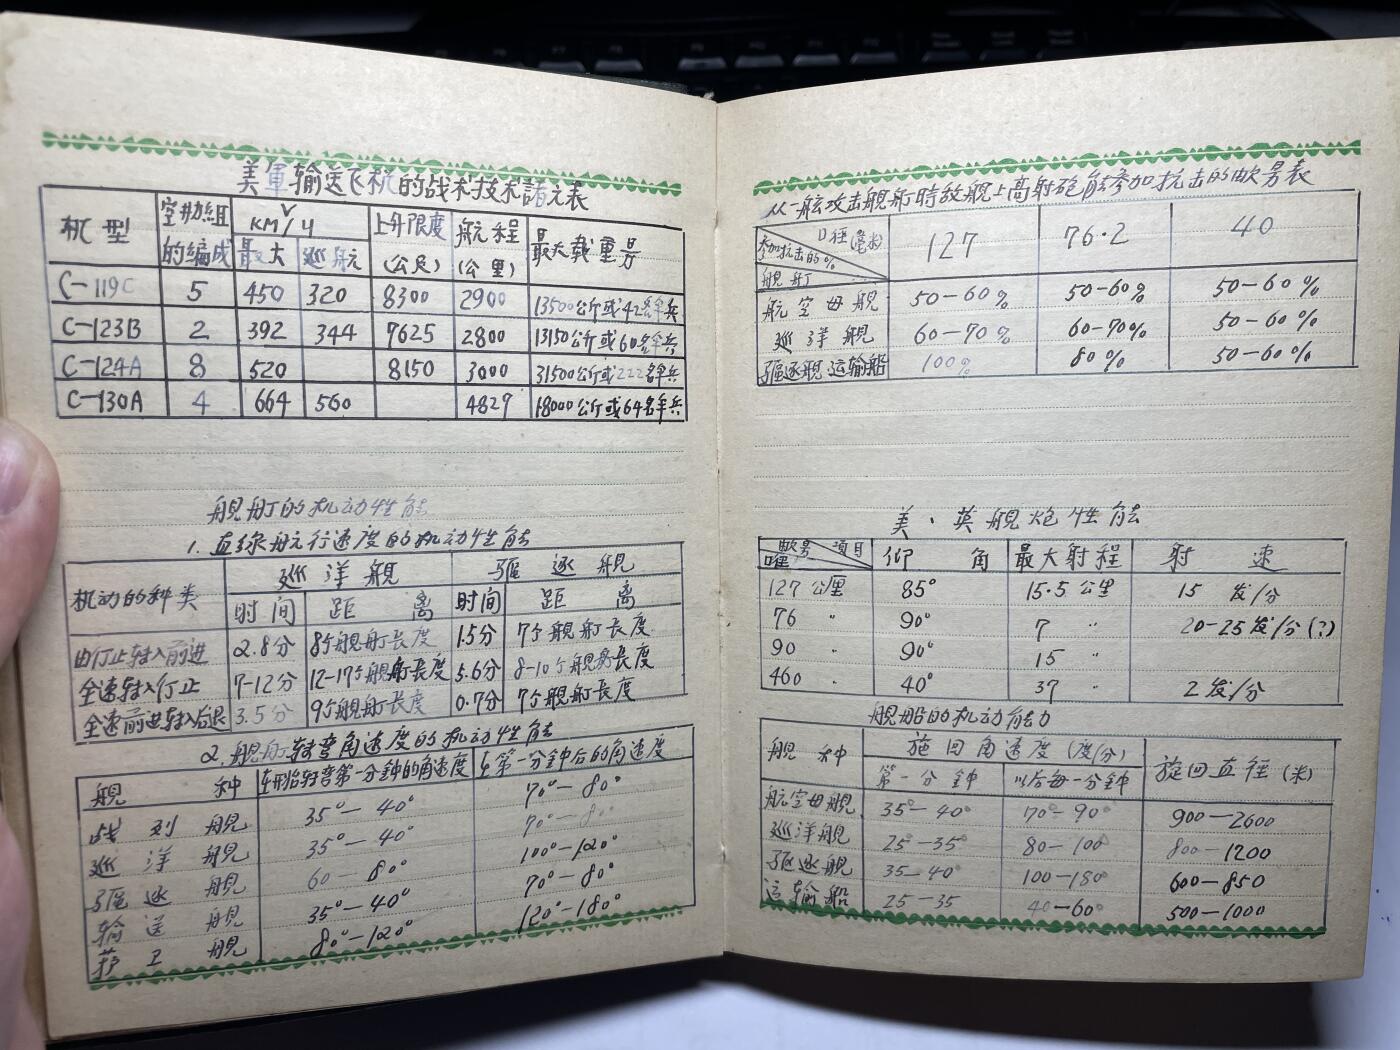 美軍输送飞机的战术技术諸元表
机型 空勤組的编成 V KM/ч 最大 巡航 上升限度(公尺) 航程(公里) 最大载重量
C-119C 5 450 320 8300 2900 13500公斤或42名伞兵
C-123B 2 392 344 7625 2800 13150公斤或60名伞兵
C-124A 8 520 8150 3000 31500公斤或222名伞兵
C-130A 4 664 560 4829 18000公斤或64名伞兵
舰艇的机动性能
1.直綫航行速度的机动性能
机动的种类 巡洋舰 驅逐舰
时间 距离 时间 距离
由停止转入前进 2.8分 8个舰艇长度 1.5分 7个舰艇长度
全速转入停止 7-12分 12-17个舰艇长度 5.6分 8-10个舰艇长度
全速前进转入后退 3.5分 9个舰艇长度 0.7分 7个舰艇长度
2.舰艇转弯角速度的机动性能
舰种 在开始转弯第一分鈡的角速度 在第一分鈡后的角速度
战列舰 35°-40° 70°-80°
巡洋舰 35°-40° 70°-80°
驅逐舰 60-80° 100°-120°
输送舰 35°-40° 70°-80°
护卫舰 80°-120° 120°-180°
从一舷攻击舰艇時敌舰上高射砲能参加抗击的数量表
口径(毫米) 参加抗击的% 舰艇 127 76.2 40
航空母舰 50-60% 50-60% 50-60%
巡洋舰 60-70% 60-70% 50-60%
驅逐舰运输船 100% 80% 50-60%
美、英舰炮性能
口徑 数量 項目 仰角 最大射程 射速
127公厘 85° 15.5公里 15发/分
76 〃 90° 7 〃 20-25发/分(?)
90 〃 90° 15 〃
460 〃 40° 37 〃 2发/分
舰船的机动能力
舰种 施回角速度(度/分) 旋回直径(米)
第一分鈡 以后每一分鈡
航空母舰 35°-40° 70°-90° 900-2600
巡洋舰 25°-35° 80-100° 800-1200
驅逐舰 35-40° 100-180° 600-850
运输船 25-35 40-60° 500-1000